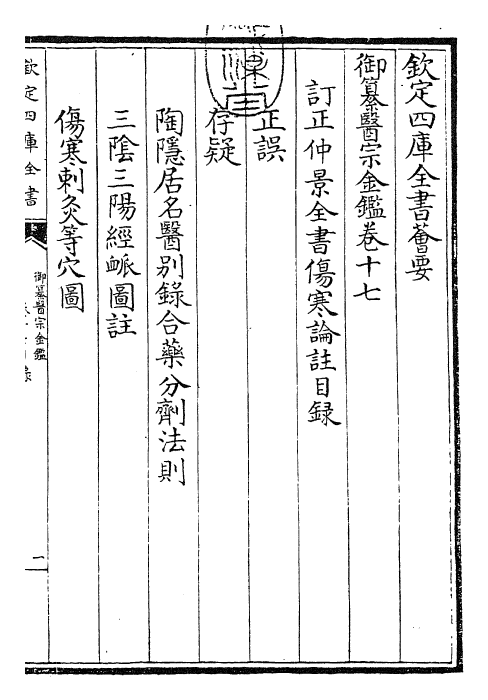 欽定四庫全書薈要
御纂醫宗金鑑卷十七
訂正仲景全書傷寒論註目録
正誤
存疑
陶隱居名醫別錄合藥分劑法則
三陰三陽經衇圖註
傷寒刺灸等穴圖
欽定四庫全書
御纂醫宗金鑑
一